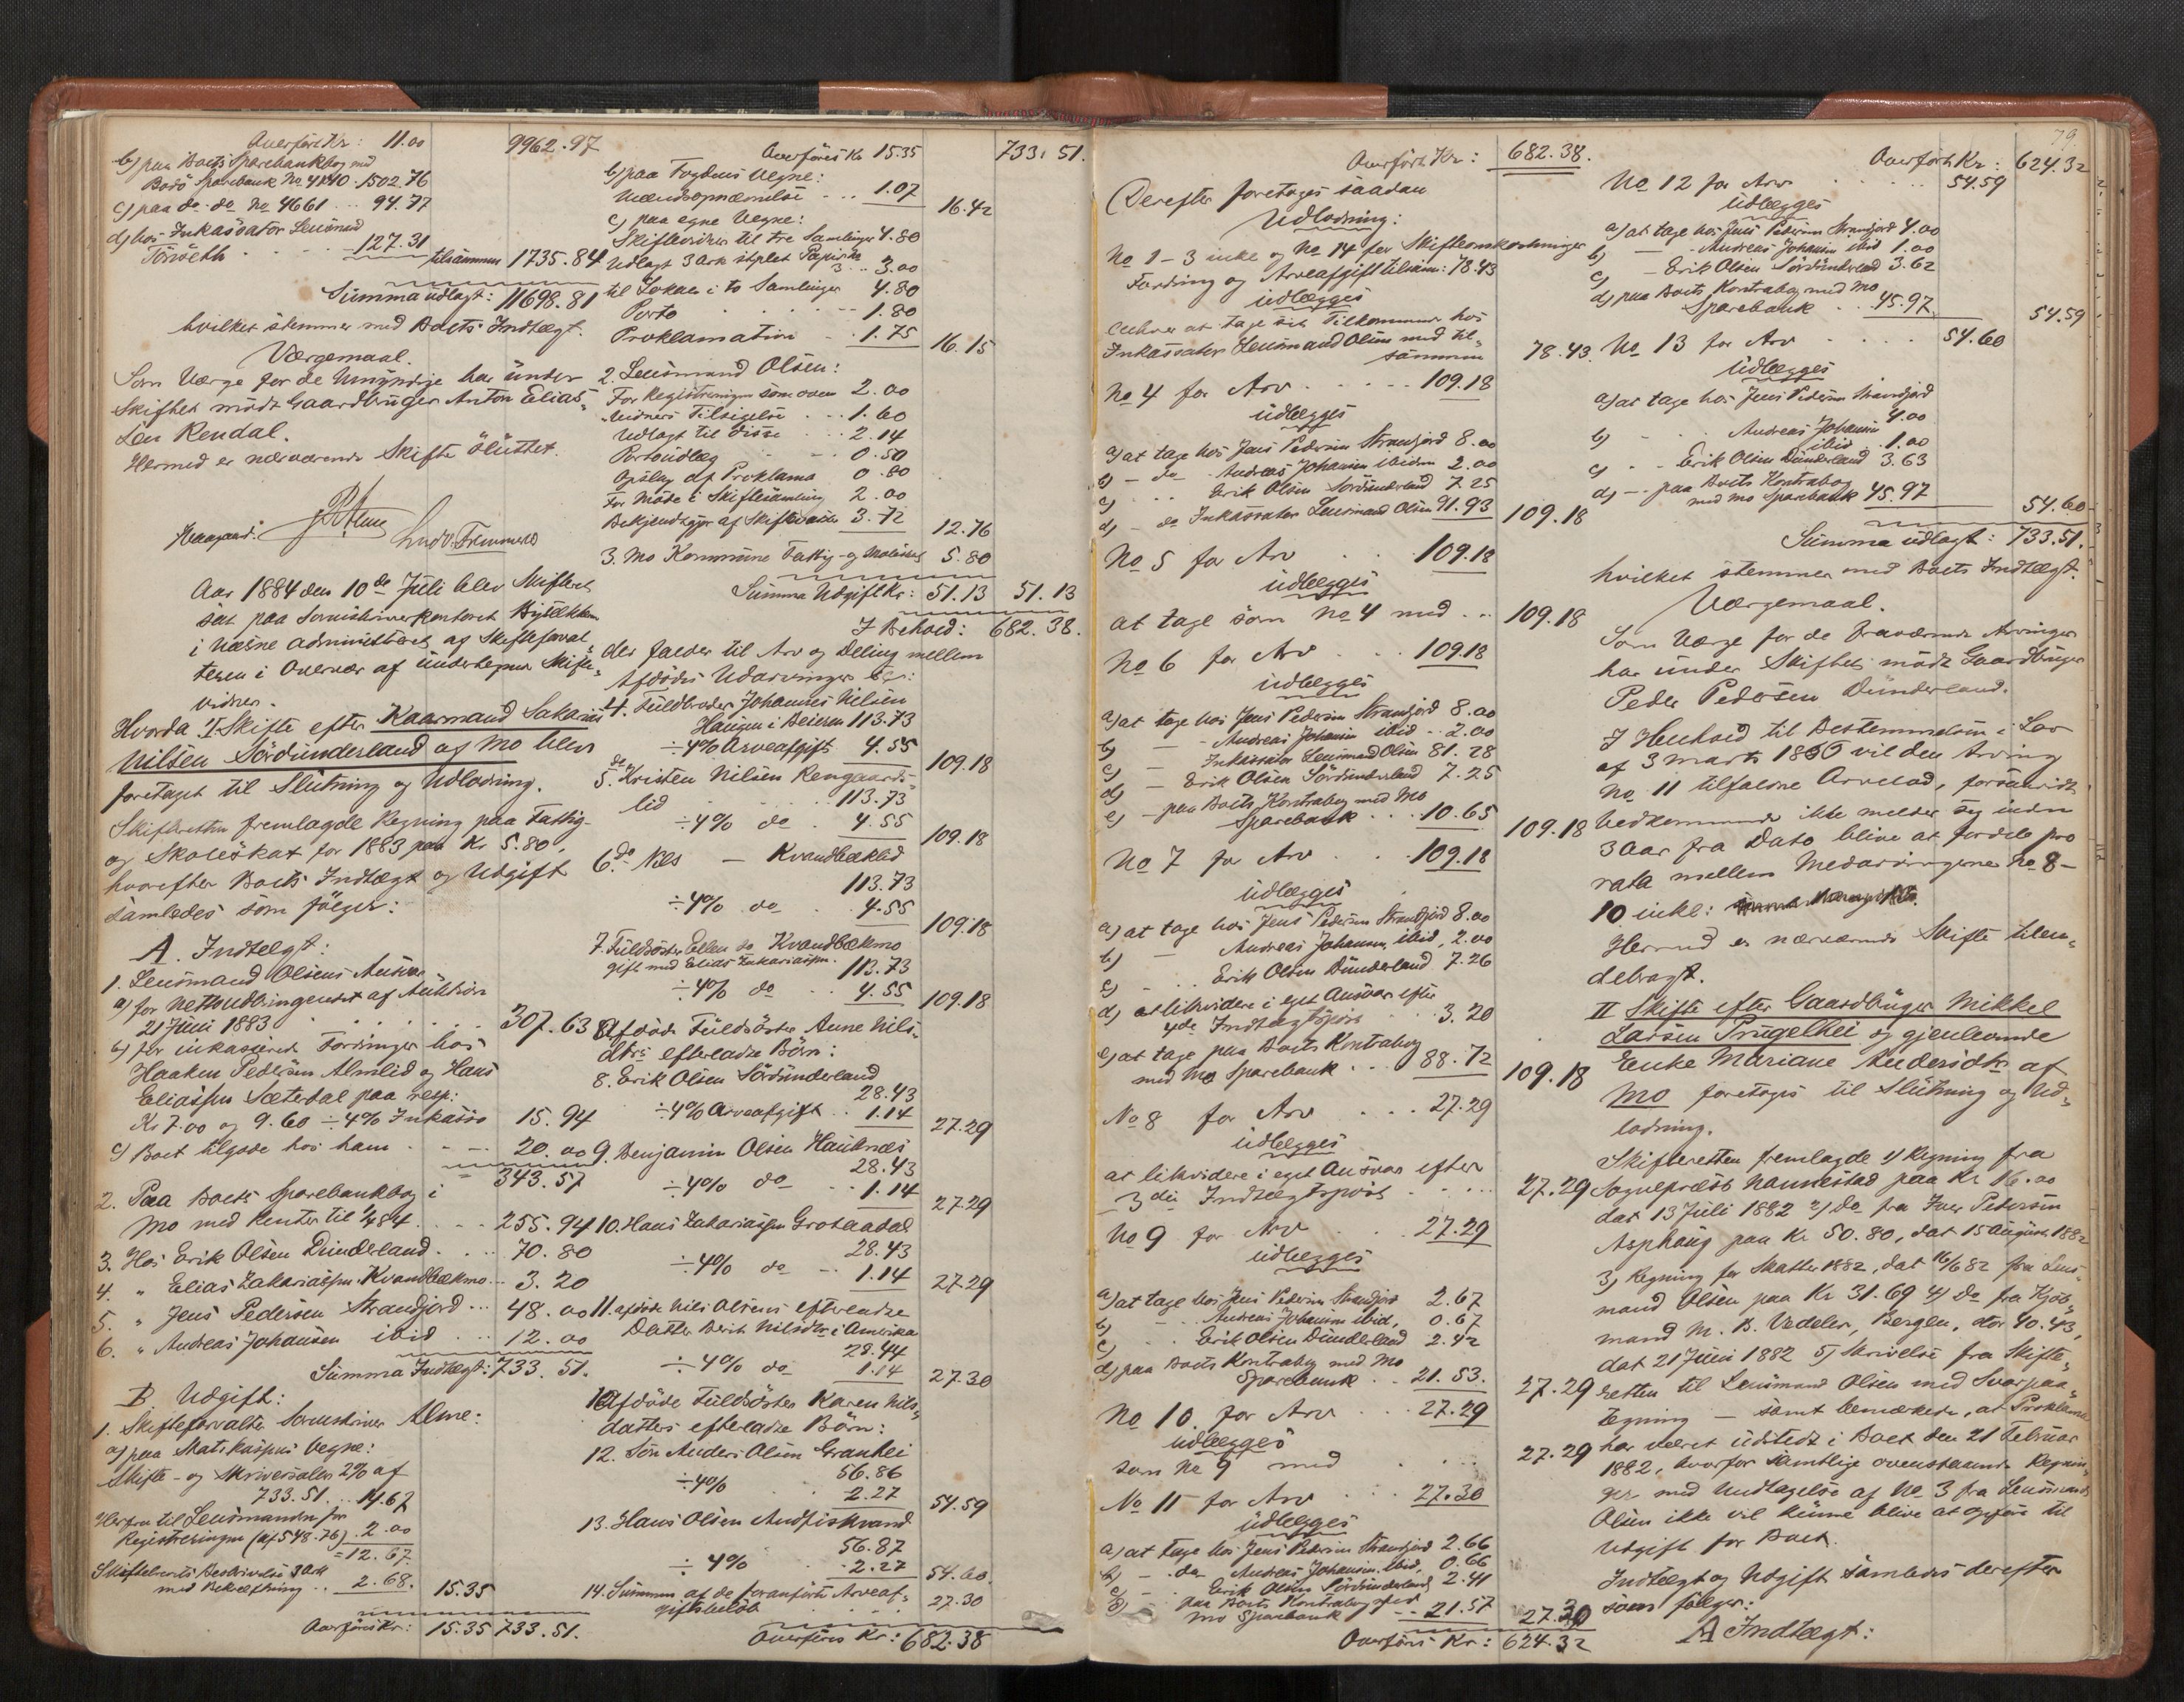 Overført Kr: 11.00 9962.97
b) paa Boets Sparebankbog med
Bodö Sparebank No 4840 . 1502.76
c) paa do. do No 4661 ... 94.77
d) hos Inkassator Lensmand
127.31 tilsammen 1735.84
Summa udlagt: 11698.81
hvilket stemmer med Boets Indtægt.
Værgemaal.
Som Værge for de Umyndige har under
Skiftet mödt Gaardbruger Anton Elias-
sen Rendal.
Hermed er nærværende Skifte sluttet.
Aar 1884 den 10de Juli blev Skifteret
sat paa Sorenskriverkontoret
i Næsne administreret af Skifteforval-
teren i Overvær af undertegnede Skifte-
vidner.
Hvorda: I. Skifte efter Kaarmand Sakarias
Nilsen Sördunderland af Mo blev
foretaget til Slutning og Udlodning.
Skifteretten fremlagde Regning paa Fattig-
og Skoleskat for 1883 paa Kr 5.80,
hvorefter Boets Indtægt og Udgift
samledes som følger:
A. Indtægt:
1. Lensmand Olsens Ansvar
a) for Nettoudbringendet af Auktion
21 Juni 1883 . . . . 307.63
b) for inkasserede Fordringer hos
Haaken Pedersen Almlid og Hans
Eliassen Sæterdal paa resp:
Kr 7.00 og 9.60 ÷ 4% Inkasso 15.94
c) Boet tilgode hos ham . - - - 20.00
343.57
2. Paa Boets Sparebankbog i
Mo med Renter til 1/4 84 . . . 255.94
3. Hos Erik Olsen Dunderland . . . 70.80
4. " Elias Zakariassen Kvandbækmo ... 3.20
5. " Jens Pedersen Strandjord ... 48.00
6. " Andreas Johansen ibid ... 12.00
Summa Indtægt: 733.51.
B. Udgift:
1. Skifteforvalter Sorenskriver Alme:
a) paa Statskassens Vegne:
Skifte- og Skriversalær 2% af
733.51 ... 14.67
Herfra til Lensmanden for
Registreringen (af 548.76) . 2.00
= 12.67
Skiftebrevets Beskrivelse 3 Ark
med Bekræftning .. 2.68. 15.35
Overføres Kr: 15.35 733.51.
Overføres Kr 15.35 733.51.
b) paa Fogdens Vegne:
Mændsopnævnelse ... 1.07 16.42
c) paa egne Vegne:
Skiftevidner til tre Samlinger 4.80
Udlagt 3 Ark stplet Papir 3.00
til Lokale i to Samlinger 4.80
Porto . . . 1.80
Proklamation . 1.75 16.15
2. Lensmand Olsen:
For Registreringen som oven 2.00
Vidners Tilsigelse ... 1.60
Udlagt til disse ... 2.14
Portoudlæg . . . 0.50
Opslag af Proklama 0.80
For Møde i Skiftesamling 2.00
Bekjendtgjør af Skiftevæsen 3.72 12.76
3. Mo Kommune Fattig- og Skoleskat 5.80
Summa Udgift Kr: 51.13 51.13
I Behold: 682.38.
der falder til Arv og Deling mellem
Afdødes Udarvinger
4. Fuldbroder Johannes Nilsen
Haugen i Beieren 113.73
÷ 4% Arveafgift 4.55 109.18
5. do Kristen Nilsen Rengaards-
lid . . . . 113.73
÷ 4% do . 4.55 109.18
6. do Nils — Kvandbæklid
113.73
÷ 4% do . 4.55 109.18
7. Fuldsöster Ellen do Kvandbækmo
gift med Elias Zakariassen. 113.73
÷ 4% do . . 4.55 109.18
Afdöde Fuldsöster Anne Nils-
dtrs efterladte Börn:
8. Erik Olsen Sördunderland
28.43
÷ 4% Arveafgift .. 1.14 27.29
9. Benjamin Olsen Hauknæs
28.43
÷ 4% do .. 1.14 27.29
10. Hans Zakariassen Grotaadal
28.43
÷ 4% do .. 1.14 27.29
11. afdöde Nils Olsens efterladte
Datter Berit Nilsdtr i Amerika
28.44
÷ 4% do 1.14 27.30
Afdöde Fuldsöster Karen Nils-
datters efterladte Börn:
12. Sön Anders Olsen Granhei
56.86
÷ 4% . 2.27 54.59
13. Hans Olsen Andfiskvand
56.87
÷ 4% . 2.27 54.60.
14. Summen af de foranførte Arveaf-
giftsbeløb . . . 27.30
Overføres Kr: 682.38
Overført Kr: 682.38.
Derefter foretoges saadan
Udlodning:
No 1-3 inkl og No 14 for Skifteomkostninger
Fordring og Arveafgift tilsam: 78.43
udlægges
enhver at tage sit Tilkommende hos
Inkassator Lensmand Olsen med til-
sammen 78.43.
No 4 for Arv . . . . . 109.18
udlægges
a) at tage hos Jens Pedersen Strandjord 8.00
b) - do - Andreas Johansen ibidm 2.00
c) . . Erik Olsen Sördunderland 7.25
d) - do Inkassator Lensmand Olsen 91.93 109.18
No 5 for Arv . . . 109.18
udlægges
at tage som No 4 med .. 109.18
No 6 for Arv . . . 109.18
udlægges
a) at tage hos Jens Pedersen Strandjord 8.00
b) — - Andreas Johansen ibid .. 2.00
c) — Inkassator Lensmand Olsen 81.28
d) — Erik Olsen Sördunderland 7.25
e) - paa Boets Kontrabog med Mo
Sparebank . . . 10.65 109.18
No 7 for Arv . . . 109.18
udlægges
a) at tage hos Jens Pedersen Strandjord 8.00
b) — Andreas Johansen ibid, 2.00
c) . . Erik Olsen Dunderland 7.26
d) at likvidere i eget Ansvar efter
4de Indtægtspost . . 3.20
e) at tage paa Boets Kontrabog
med Mo Sparebank . . . 88.72 109.18
No 8 for Arv . . . . 27.29
udlægges
at likvidere i eget Ansvar efter
3die Indtægtspost . . . . 27.29
No 9 for Arv . . . 27.29
udlægges
a) at tage hos Jens Pedersen Strandjord 2.67
b) - . . Andreas Johansen ibid, 0.67
c) . . Erik Olsen Dunderland 2.42
d) paa Boets Kontrabog med Mo
Sparebank . . 21.53. 27.29
No 10 for Arv . . . 27.29
udlægges
som No 9 med . . . 27.29
No 11 for Arv . . . 27.30
udlægges
a) at tage hos Jens Pedersen Strandjord 2.66
b) - . do . Andreas Johansen ibid, 0.66
c) - . Erik Olsen Sördunderland 2.41
d) - paa Boets Kontrabog med
Mo Sparebank -- 21.57 27.30
Overføres Kr: 624.32
79.
Overført Kr: 624.32
No 12 for Arv . . . . 54.59
udlægges
a) at tage hos Jens Pedersen Strandjord 4.00
b) — - Andreas Johansen ibid 1.00
c) - Erik Olsen Sördunderland 3.62
d) paa Boets Kontrabog med Mo
Sparebank . . 45.97 54.59
No 13 for Arv . . . . 54.60
udlægges
a) at tage hos Jens Pedersen Strandjord
4.00
b) - . Andreas Johansen
ibid . 1.00
c) . - Erik Olsen Dunderland 3.63
d) - paa Boets Kontrabog
med Mo Sparebank 45.97 54.60
Summa udlagt: 733.51.
hvilket stemmer med Boets Indtægt.
Værgemaal.
Som Værge for de fraværende Arvinger
har under Skiftet mödt Gaardbruger
Peder Pedersen Dunderland.
I Henhold til Bestemmelsen i Lov
af 3 Marts 1860 vil den Arving
No 11 tilfaldne Arvelod, forsaavidt
Vedkommende ikke melder sig inden
3 Aar fra Dato blive at fordele pro
rata mellem Medarvingerne No 8-
10 inkl:
Hermed er nærværende Skifte tilen-
debragt.
II Skifte efter Gaardbruger Mikkel
Larsen Prugelhei og gjenlevende
Enke Mariane Andersdtr af
Mo foretoges til Slutning og Ud-
lodning.
Skifteretten fremlagde 1) Regning fra
Sognepræst Nannestad paa Kr 16.00
dat 13 Juli 1882 2) do fra Iver Pedersen
Asphaug paa Kr 50.80, dat 15 August 1882
3) Regning for Skatter 1882, dat 16/6 82 fra Lens-
mand Olsen paa Kr 31.69 4) Do fra Kjøb-
mand M. B. Vedeler, Bergen, stor 40.43,
dat 21 Juni 1882 5) Skrivelse fra Skifte-
retten til Lensmand Olsen med Svarpaa-
tegning — samt bemærkede, at Proklama
har været udstedt i Boet den 21 Februar
1882, hvorfor samtlige ovenstaaende Regnin-
ger med Undtagelse af No 3 fra Lensmand
Olsen ikke vil kunne blive at opføre til
Udgift for Boet.
Indtægt og Udgift samledes derefter
som følger:
A Indtægt: